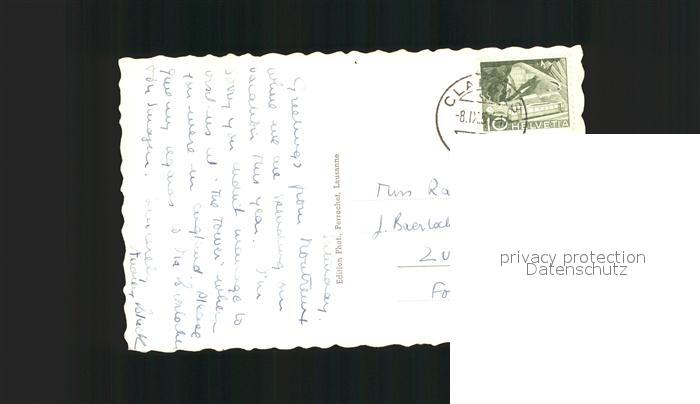 Saturday.
Greetings from Montreux
where we are spending our
vacation this year. I'm
sorry you didn't manage to
visit us at "The Tower" when
you were in England. Please
give my regards to the
Sincerely,
Audrey
Edition Phot. Perrochet, Lausanne
CLA
-8.IX.5
10 HELVETIA
Miss Ra
J. Baerloch
Zu
Fo
privacy protection
Datenschutz